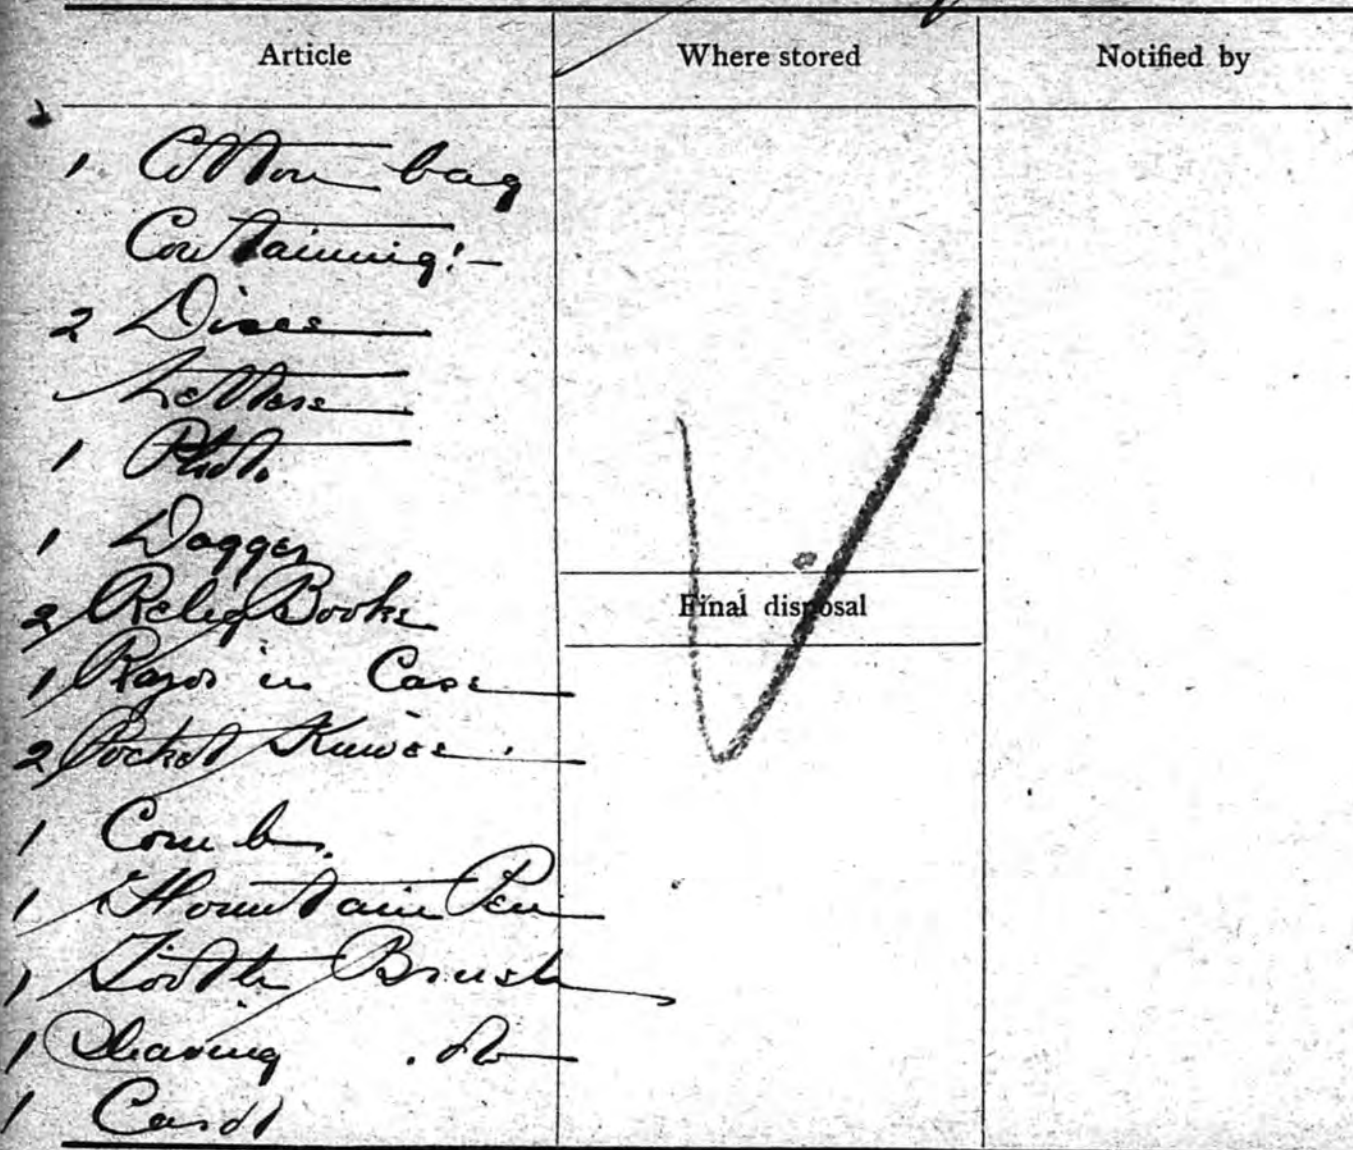 Article Where stored Notified by
1 Cotton bag
Containing:-
2 Discs
Letters
1 Phot.
1 Dagger
2 Relig Books
Final disposal
1 Razor in Case
2 Pocket Knives
1 Comb.
1 Fountain Pen
1 Tooth Brush
1 Shaving . do
1 Card